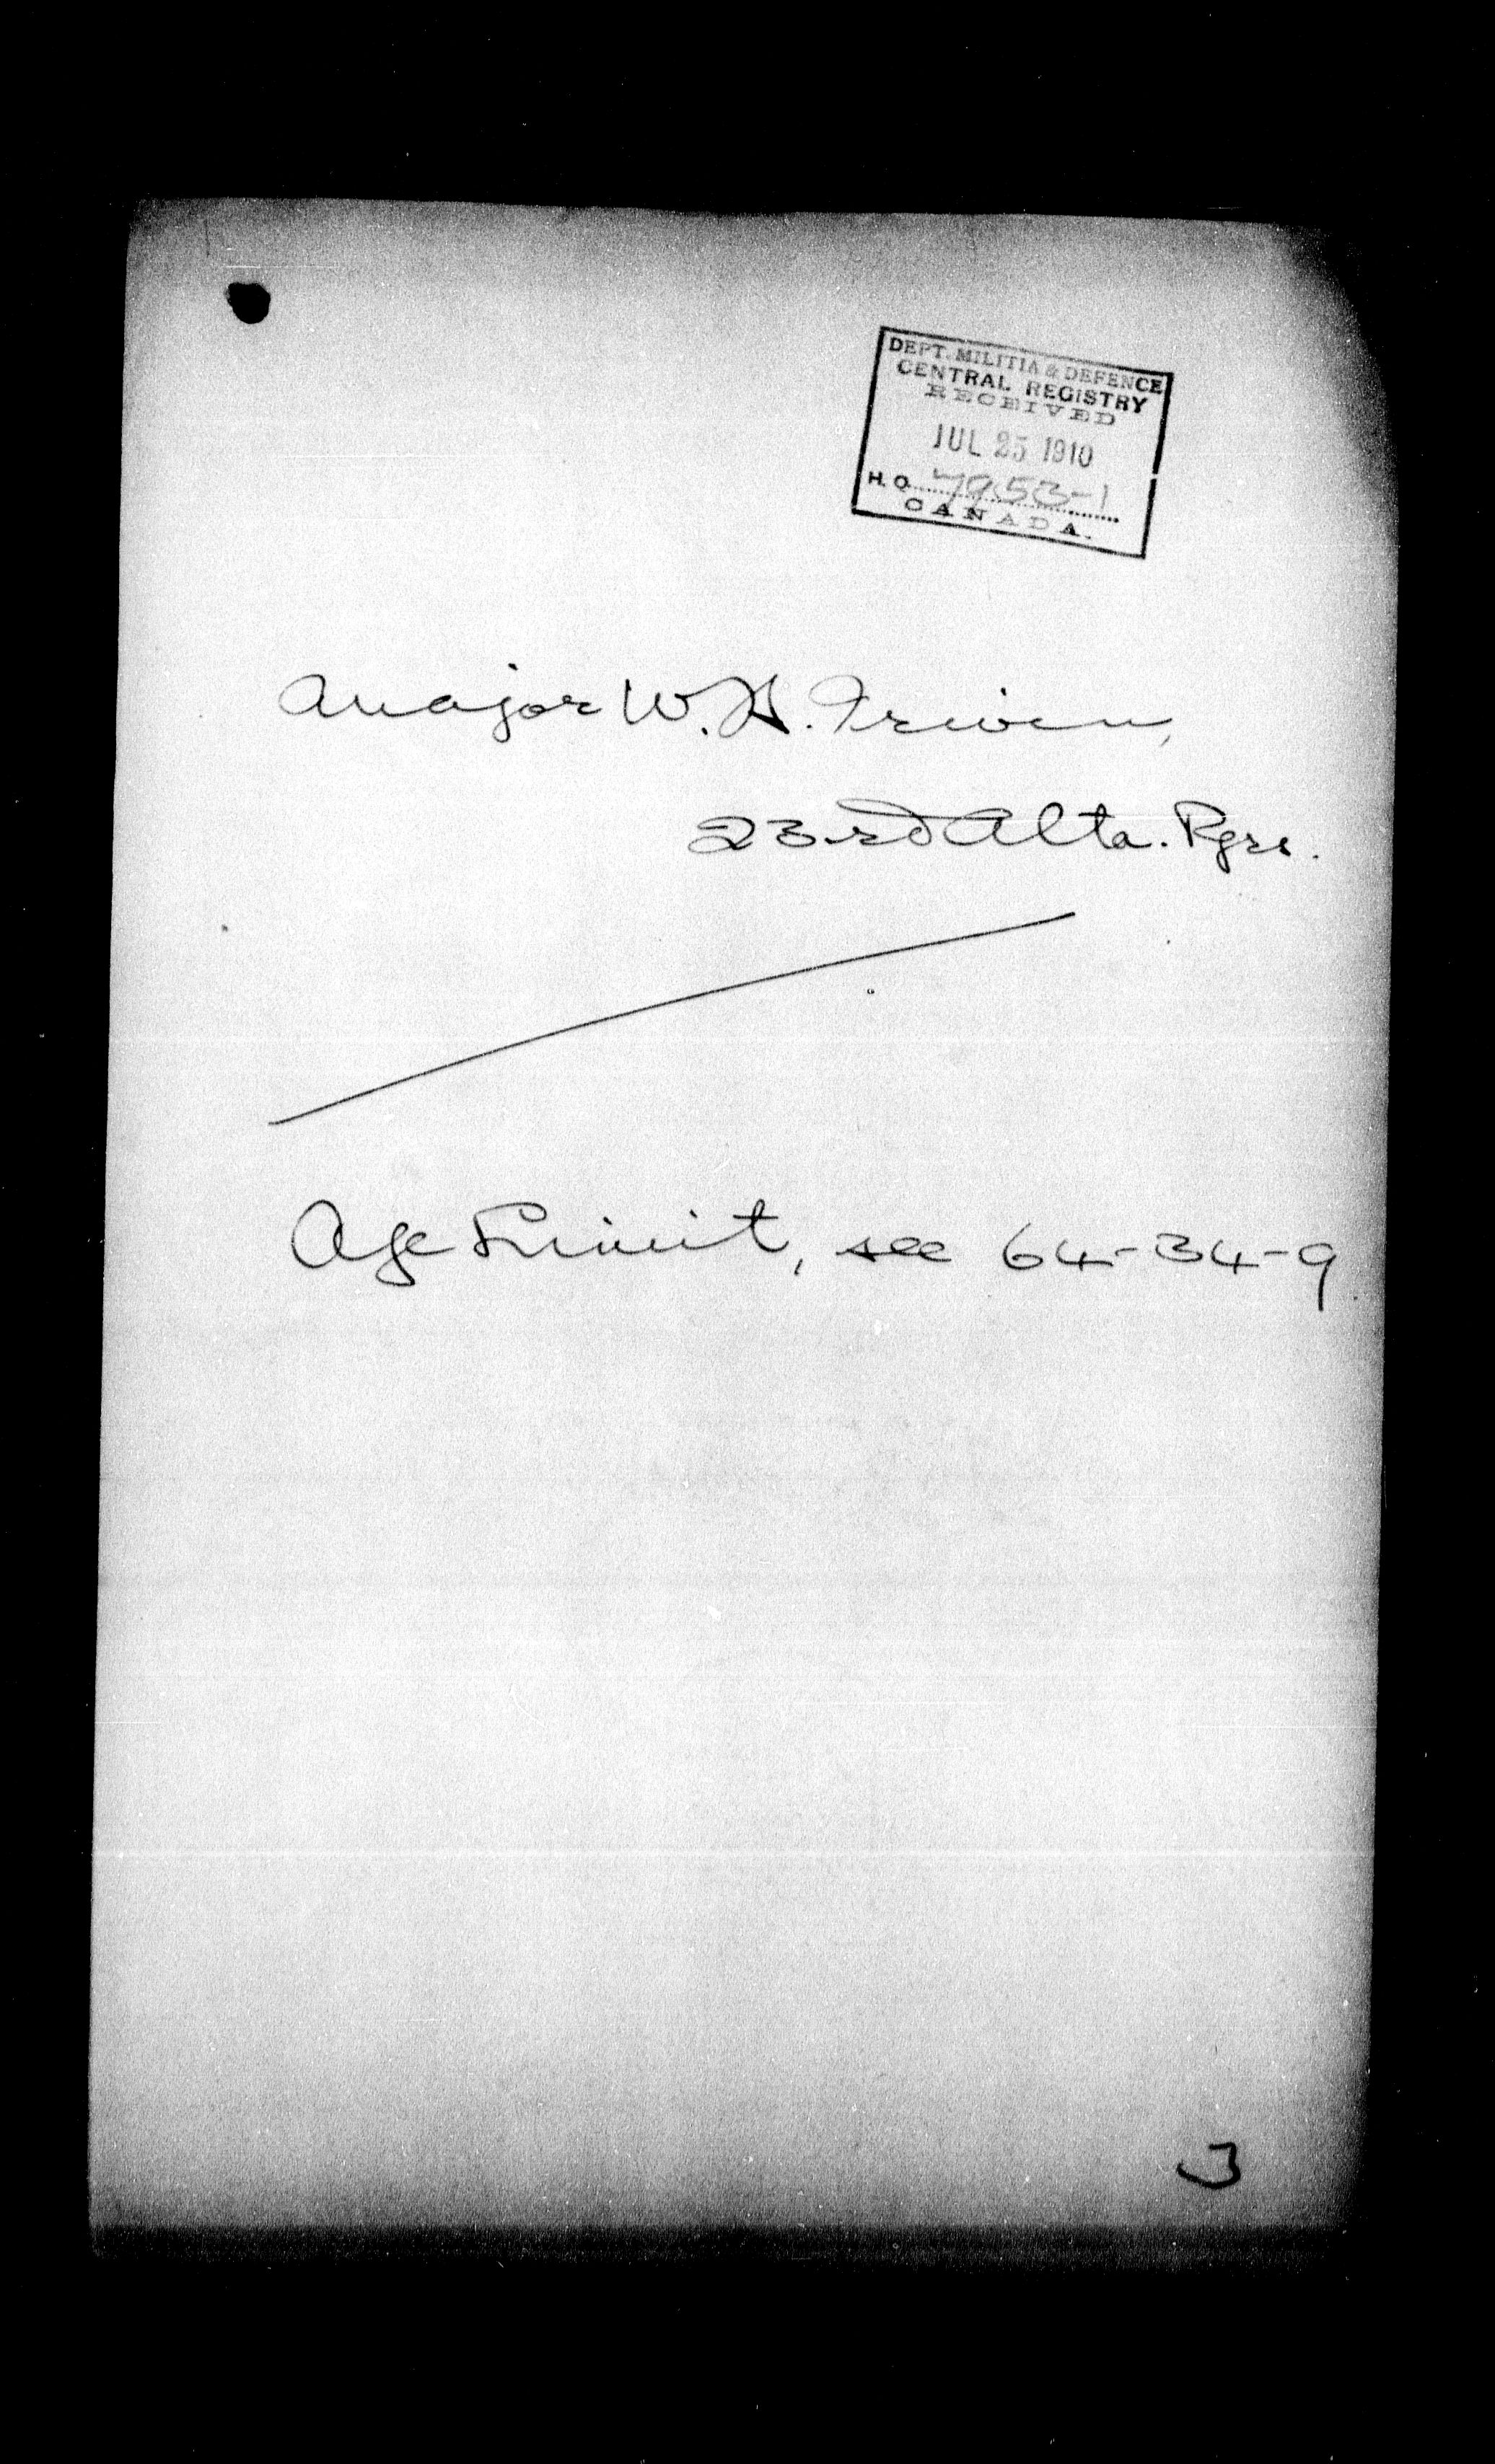 DEPT. MILITIA & DEFENCE
CENTRAL REGISTRY
RECEIVED
JUL 25 1910
H.Q. 7953-1
CANADA.
Major W. H. Irwin,
23rd Alta. Rgrs.
Age Limit, see 64-34-9
3